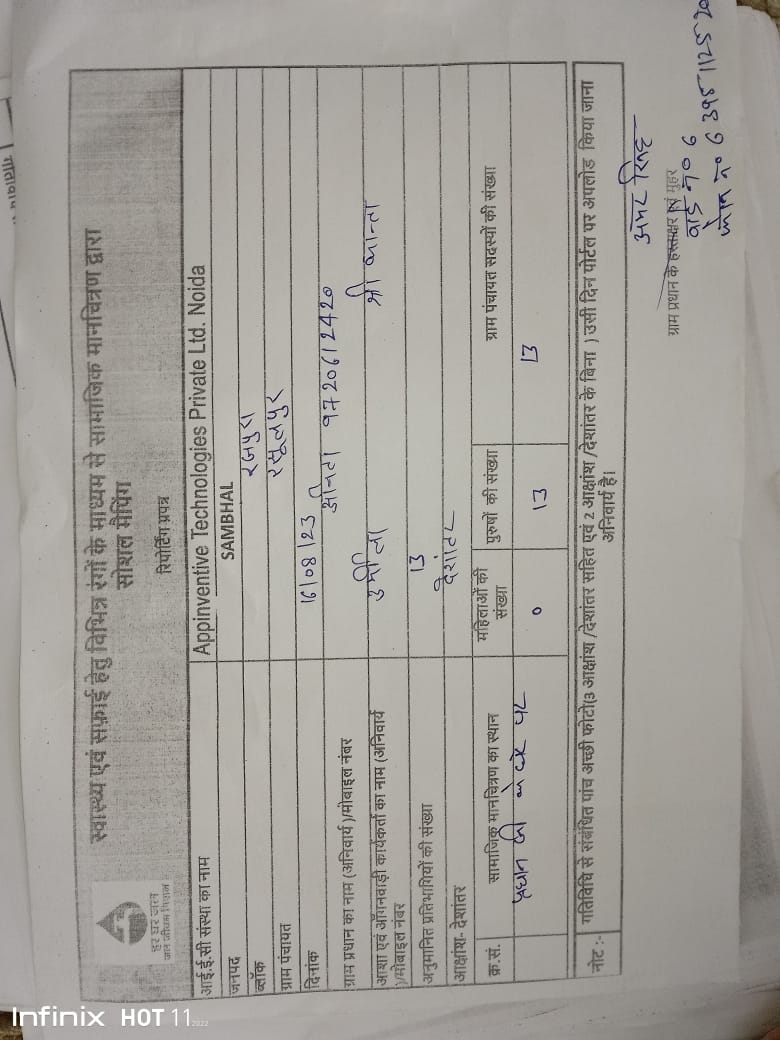 स्वास्थ्य एवं सफ़ाई हेतु विभिन्न रंगों के माध्यम से सामाजिक मानचित्रण द्वारा
सोशल मैपिंग
रिपोर्टिंग प्रपत्र
हर घर जल
जल जीवन मिशन
आई.ई.सी संस्था का नाम Appinventive Technologies Private Ltd. Noida
जनपद SAMBHAL
ब्लॉक रजपुरा
ग्राम पंचायत रसूलपुर
दिनांक 16/08/23
ग्राम प्रधान का नाम (अनिवार्य)/मोबाइल नंबर अनिता 9720612420
आशा एवं आँगनवाड़ी कार्यकर्ता का नाम (अनिवार्य
)/मोबाइल नंबर उर्मीला श्री कान्ता
अनुमानित प्रतिभागियों की संख्या 13
आक्षांश- देशांतर देशांतर
क्र.सं. सामाजिक मानचित्रण का स्थान महिलाओं की संख्या पुरुषों की संख्या ग्राम पंचायत सदस्यों की संख्या
प्रधान जी के घर पर 0 13 13
नोट :- गतिविधि से संबंधित पांच अच्छी फोटो(3 आक्षांश /देशांतर सहित एवं 2 आक्षांश /देशांतर के बिना ) उसी दिन पोर्टल पर अपलोड किया जाना
अनिवार्य है।
अमर सिंह
ग्राम प्रधान के हस्ताक्षर एवं मुहर
वार्ड न० 6
फोन न०
Infinix HOT 11 2022